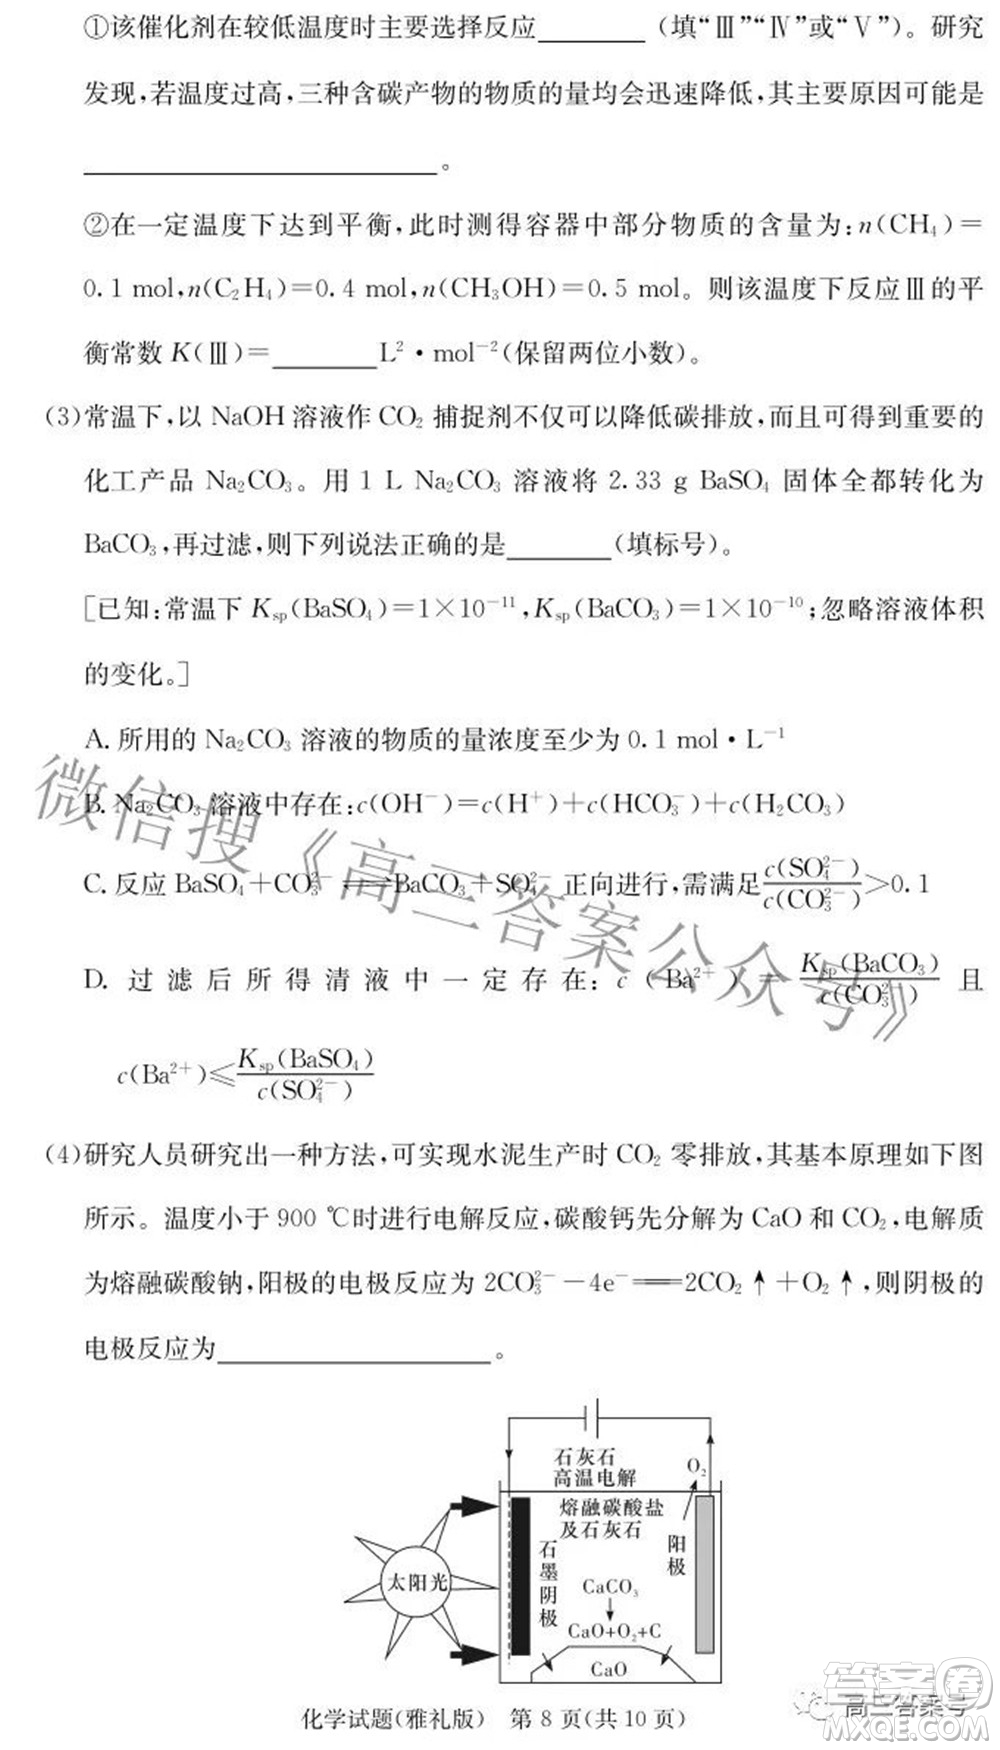 ①该催化剂在较低温度时主要选择反应________(填“Ⅲ”“Ⅳ”或“Ⅴ”)。研究
发现,若温度过高,三种含碳产物的物质的量均会迅速降低,其主要原因可能是
________________________。
②在一定温度下达到平衡,此时测得容器中部分物质的含量为:n(CH₄)=
0.1 mol,n(C₂H₄)=0.4 mol,n(CH₃OH)=0.5 mol。则该温度下反应Ⅲ的平
衡常数 K(Ⅲ)=________L²·mol⁻²(保留两位小数)。
(3)常温下,以 NaOH 溶液作 CO₂ 捕捉剂不仅可以降低碳排放,而且可得到重要的
化工产品 Na₂CO₃。用 1 L Na₂CO₃ 溶液将 2.33 g BaSO₄ 固体全都转化为
BaCO₃,再过滤,则下列说法正确的是________(填标号)。
[已知:常温下 Ksp(BaSO₄)=1×10⁻¹¹,Ksp(BaCO₃)=1×10⁻¹⁰;忽略溶液体积
的变化。]
A. 所用的 Na₂CO₃ 溶液的物质的量浓度至少为 0.1 mol·L⁻¹
B. Na₂CO₃ 溶液中存在:c(OH⁻)=c(H⁺)+c(HCO₃⁻)+c(H₂CO₃)
C. 反应 BaSO₄+CO₃²⁻⇌BaCO₃+SO₄²⁻ 正向进行,需满足 c(SO₄²⁻)/c(CO₃²⁻)>0.1
D. 过滤后所得清液中一定存在: c(Ba²⁺) = Ksp(BaCO₃)/c(CO₃²⁻) 且
c(Ba²⁺)≤Ksp(BaSO₄)/c(SO₄²⁻)
(4)研究人员研究出一种方法,可实现水泥生产时 CO₂ 零排放,其基本原理如下图
所示。温度小于 900 ℃时进行电解反应,碳酸钙先分解为 CaO 和 CO₂,电解质
为熔融碳酸钠,阳极的电极反应为 2CO₃²⁻−4e⁻══2CO₂↑+O₂↑,则阴极的
电极反应为____________________。
石灰石
高温电解
O₂
熔融碳酸盐
及石灰石
石墨阴极
阳极
太阳光
CaCO₃
CaO+O₂+C
CaO
化学试题(雅礼版) 第 8 页(共 10 页)
微信搜《高三答案公众号》
高三答案号
答案圈
MXQE.COM